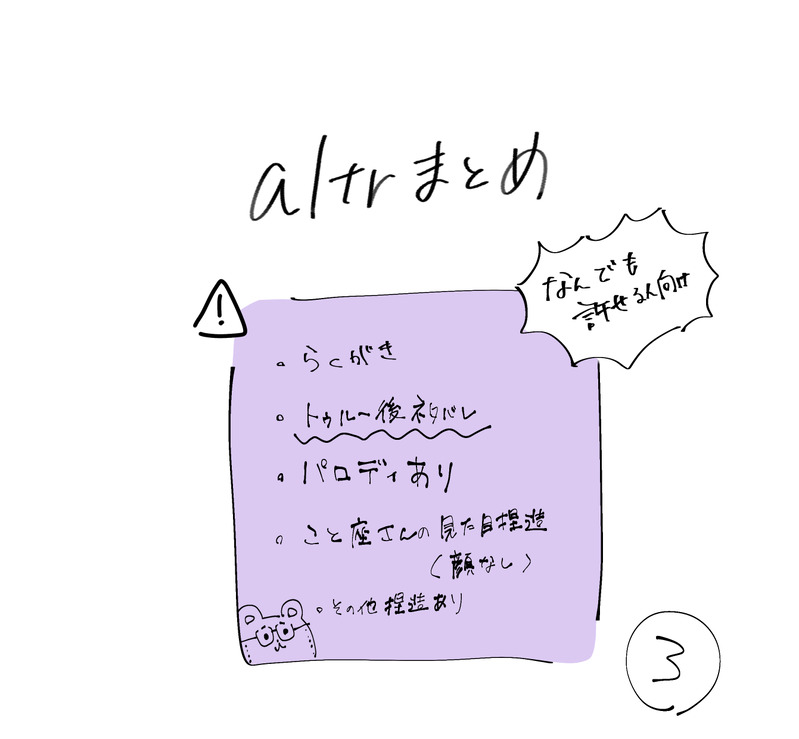 altrまとめ
なんでも
許せる人向け
!
・らくがき
・トゥルー後ネタバレ
・パロディあり
・こと座さんの見た目捏造
(顔なし)
・その他捏造あり
3